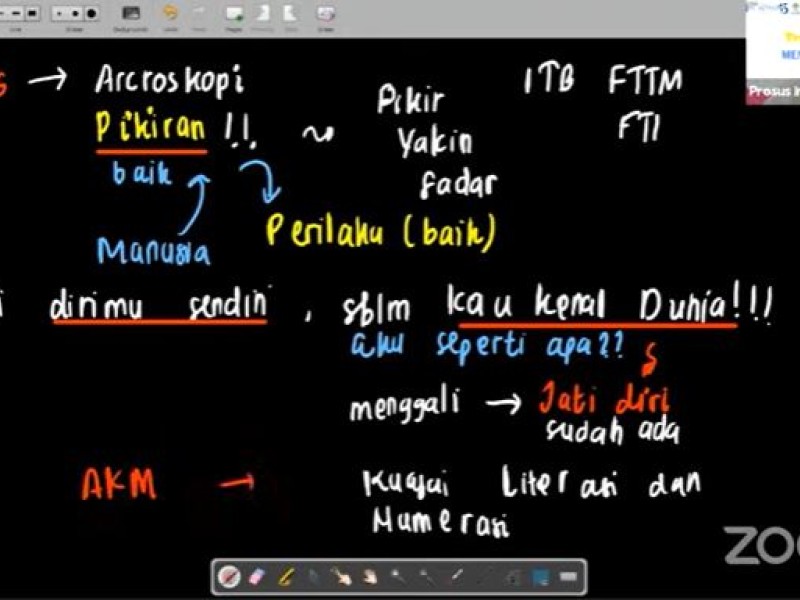 → Arcroskopi
Pikiran !! ~ Pikir
Yakin
Sadar
ITB FTTM
FTI
baik
Manusia
Perilaku (baik)
dirimu sendiri , sblm kau kenal Dunia!!!
aku seperti apa??
menggali → Jati diri
sudah ada
AKM → Kuasai Literasi dan
Numerasi
Prosus